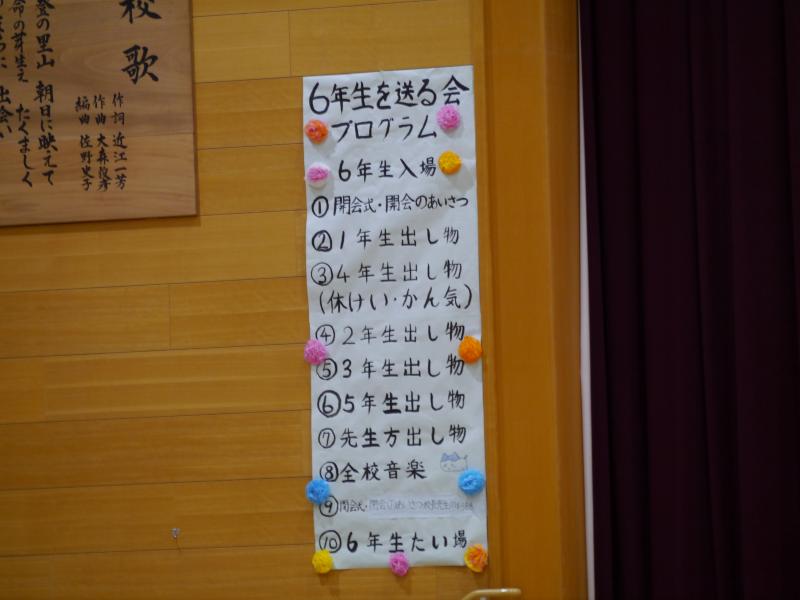 校歌
作詞 近江一芳
作曲 大森俊彦
編曲 佐野史子
登の里山 朝日に映えて
たくましく
の芽生え
出会い
6年生を送る会
プログラム
6年生入場
①開会式・開会のあいさつ
②1年生出し物
③4年生出し物
(休けい・かん気)
④2年生出し物
⑤3年生出し物
⑥5年生出し物
⑦先生方出し物
⑧全校音楽
⑨閉会式・閉会のあいさつ
⑩6年生たい場